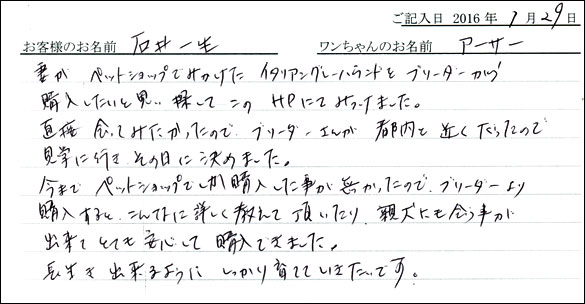 ご記入日 2016年 1月 29日
お客様のお名前 石井一生 ワンちゃんのお名前 アーサー
妻が ペットショップでみかけた イタリアングレーハウンドを ブリーダーから
購入したいと思い 探して この HPにてみつけました。
直接 会ってみたかったので、ブリーダーさんが 都内と 近くだったので
見学に行き その日に 決めました。
今まで ペットショップでしか購入した事が無かったので、ブリーダーより
購入すると、こんなに詳しく教えて頂いたり、親犬にも会う事が
出来て とても 安心して 購入できました。
長生き 出来るように しっかり育てていきたいです。